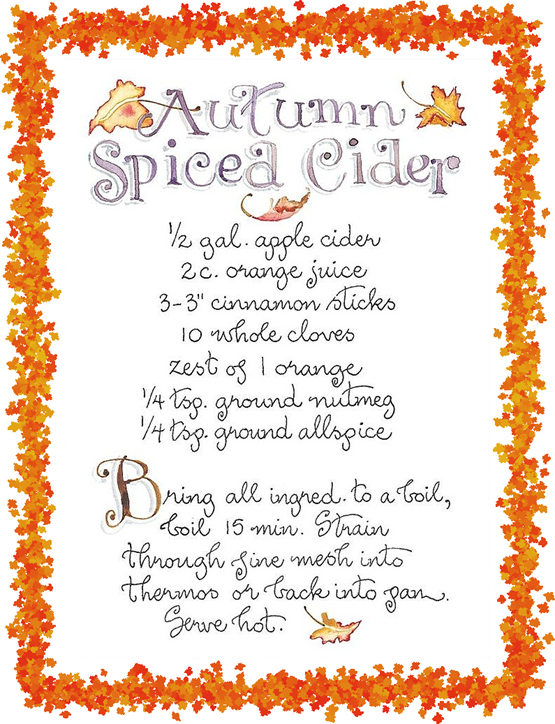 Autumn
Spiced Cider
1/2 gal. apple cider
2 c. orange juice
3-3" cinnamon sticks
10 whole cloves
zest of 1 orange
1/4 tsp. ground nutmeg
1/4 tsp. ground allspice
Bring all ingred. to a boil,
boil 15 min. Strain
through fine mesh into
thermos or back into pan.
Serve hot.